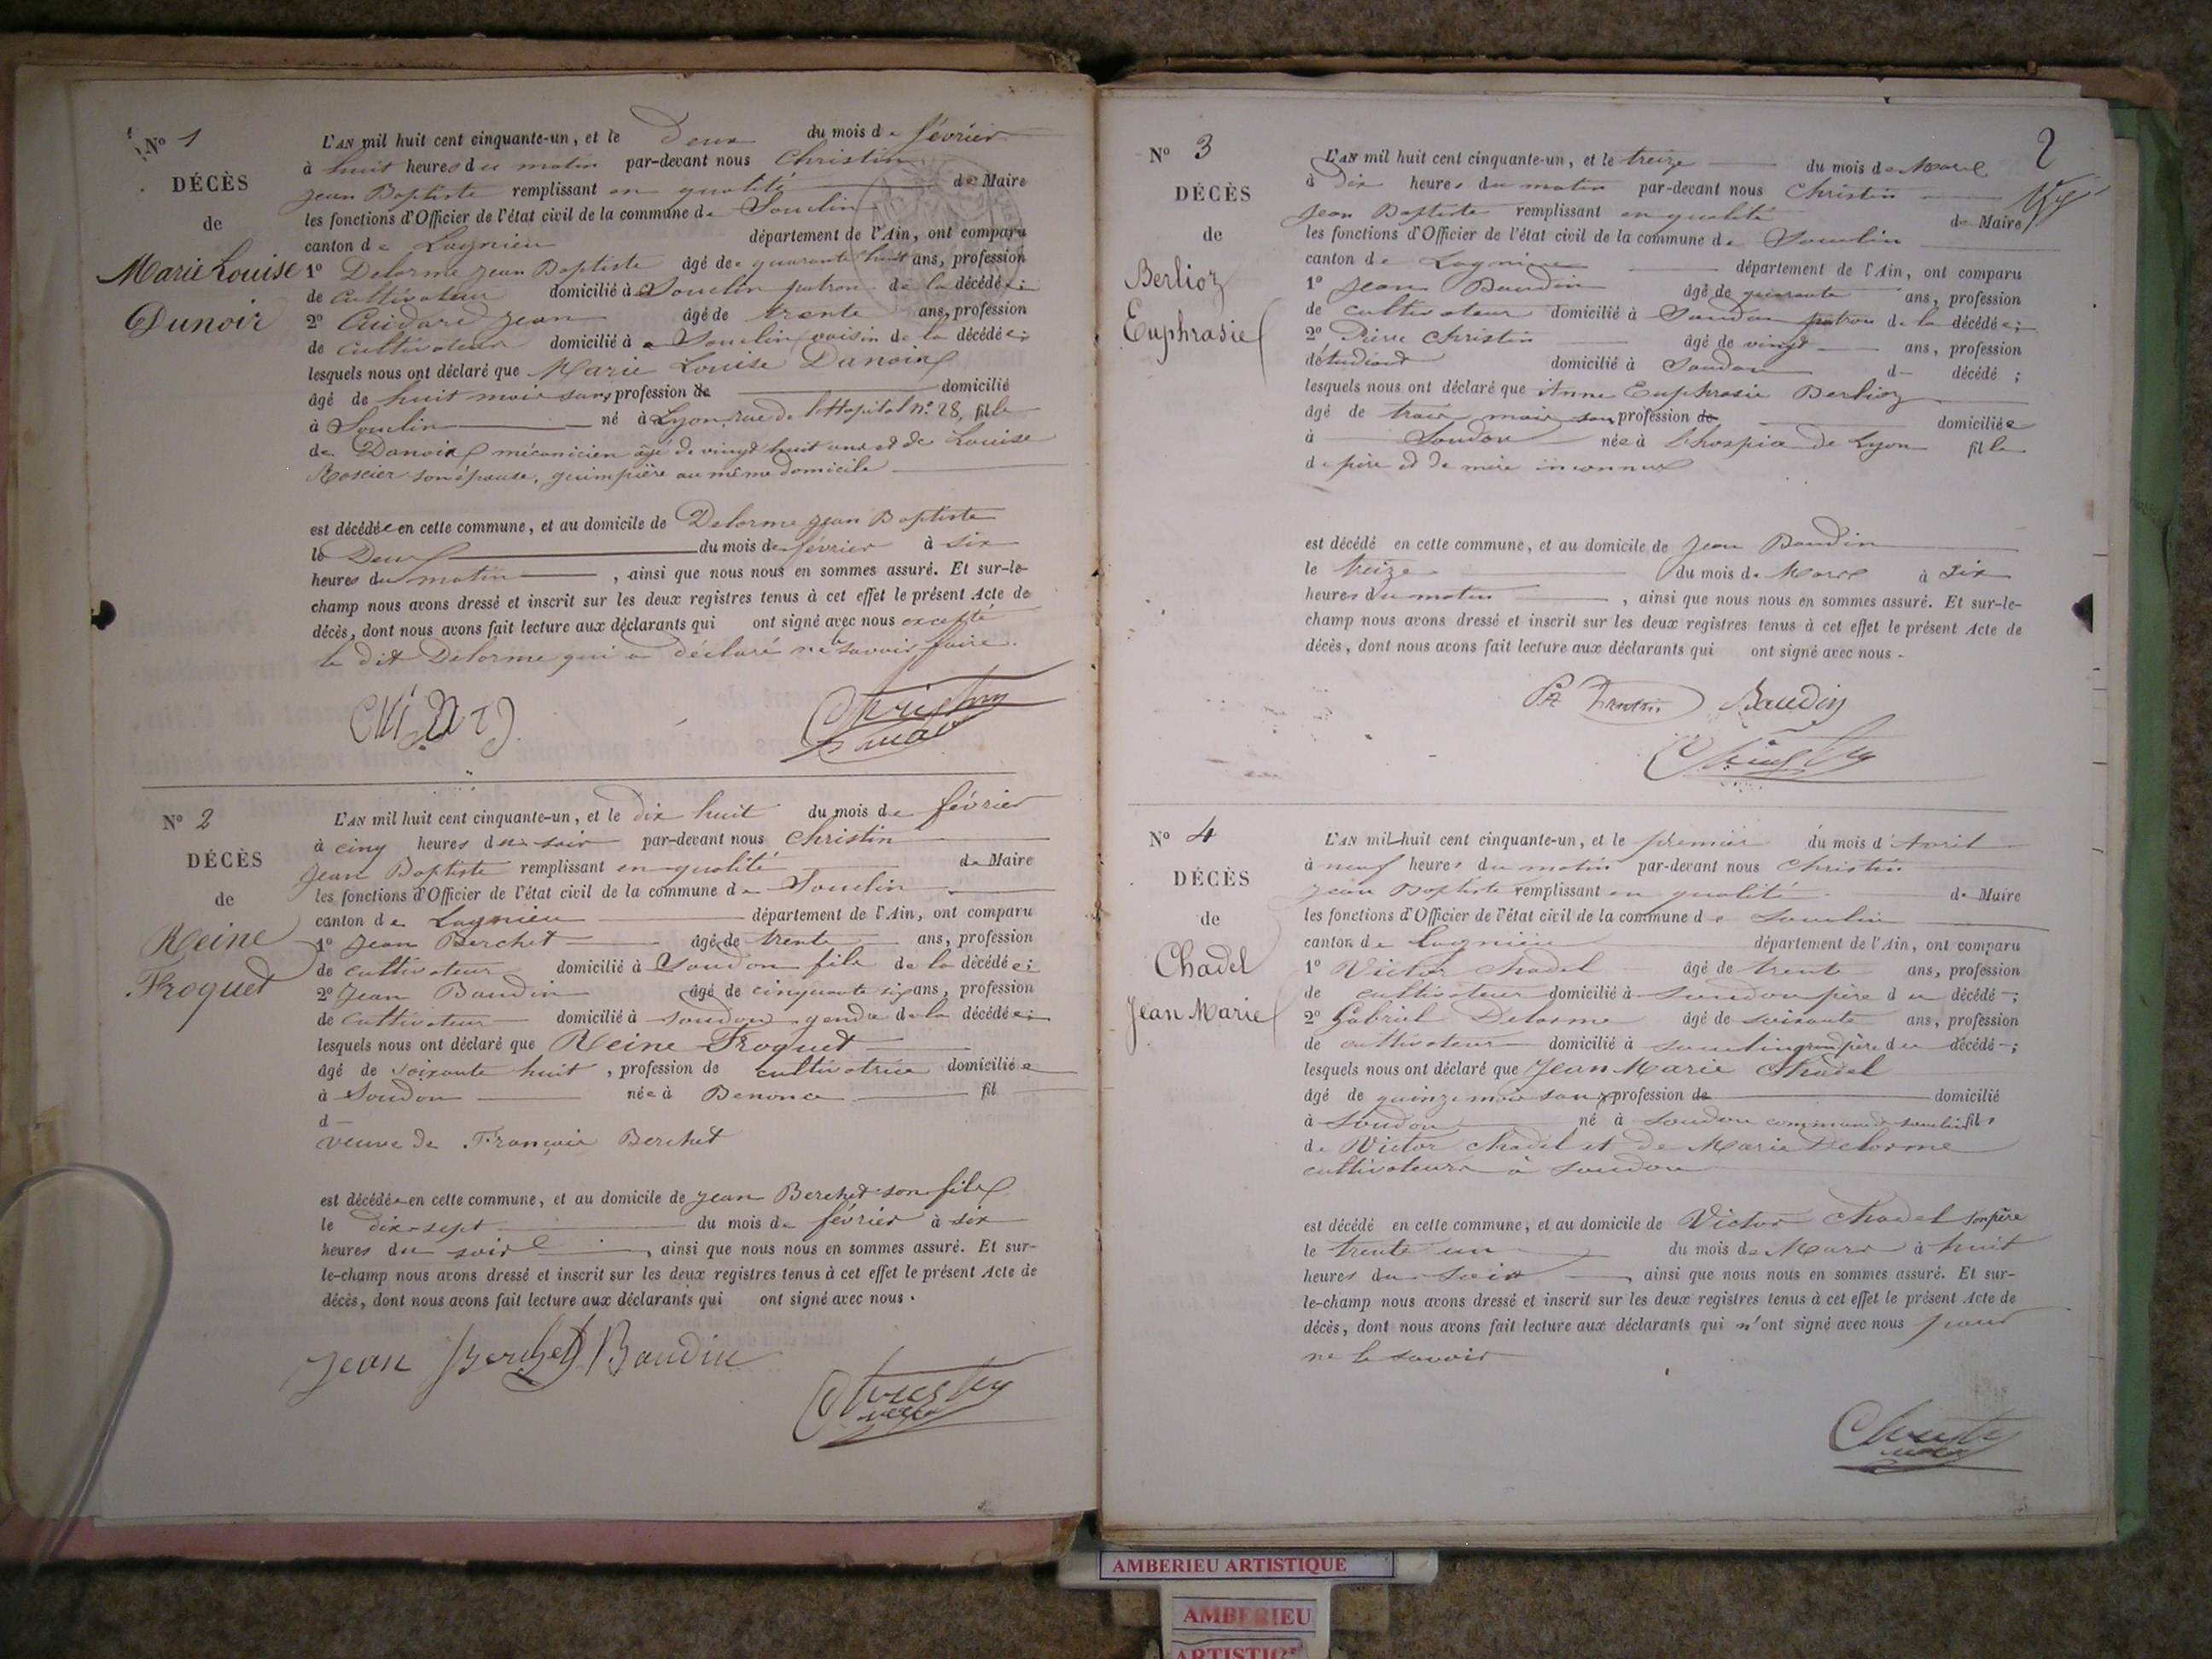 N° 1
DÉCÈS
de
Marie Louise
Dunoir
L'AN mil huit cent cinquante-un, et le Deux du mois de février
à huit heures du matin par-devant nous Christin
Jean Baptiste remplissant en qualité de Maire
les fonctions d'Officier de l'état civil de la commune de Souclin
canton de Lagnieu département de l'Ain, ont comparu
1° Delorme Jean Baptiste âgé de quarante huit ans, profession
de Cultivateur domicilié à Souclin patron de la décédée;
2° Cuidard Jean âgé de trente ans, profession
de cultivateur domicilié à Souclin voisin de la décédée;
lesquels nous ont déclaré que Marie Louise Danoir
âgé de huit mois sans profession de domicilié
à Souclin né à Lyon rue de l'Hopital n° 28, fille
de Danoir mécanicien âgé de vingt huit ans et de Louise
son épouse, guimpière au même domicile
est décédée en cette commune, et au domicile de Delorme Jean Baptiste
le Deux du mois de février à six
heures du matin, ainsi que nous nous en sommes assuré. Et sur-le-
champ nous avons dressé et inscrit sur les deux registres tenus à cet effet le présent Acte de
décès, dont nous avons fait lecture aux déclarants qui ont signé avec nous excepté
le dit Delorme qui a déclaré ne le savoir faire.
Christin
maire
N° 2
DÉCÈS
de
Reine
Froquet
L'AN mil huit cent cinquante-un, et le dix huit du mois de février
à cinq heures du soir par-devant nous Christin
Jean Baptiste remplissant en qualité de Maire
les fonctions d'Officier de l'état civil de la commune de Souclin
canton de Lagnieu département de l'Ain, ont comparu
1° Jean Berchet âgé de trente ans, profession
de cultivateur domicilié à Soudon fils de la décédée;
2° Jean Baudin âgé de cinquante six ans, profession
de cultivateur domicilié à soudon gendre de la décédée;
lesquels nous ont déclaré que Reine Froquet
âgé de soixante huit, profession de cultivatrice domiciliée
à Soudon née à Benonce fil
d
veuve de François Berchet
est décédée en cette commune, et au domicile de Jean Berchet son fils
le dix-sept du mois de février à six
heures du soir, ainsi que nous nous en sommes assuré. Et sur-
le-champ nous avons dressé et inscrit sur les deux registres tenus à cet effet le présent Acte de
décès, dont nous avons fait lecture aux déclarants qui ont signé avec nous.
Jean Berchet Baudin
Christin
maire
2
N° 3
DÉCÈS
de
Berlioz
Euphrasie
L'AN mil huit cent cinquante-un, et le treize du mois de Mars
à dix heures du matin par-devant nous Christin
Jean Baptiste remplissant en qualité de Maire
les fonctions d'Officier de l'état civil de la commune de Souclin
canton de Lagnieu département de l'Ain, ont comparu
1° Jean Baudin âgé de quarante ans, profession
de cultivateur domicilié à Soudon patron de la décédée;
2° Pierre Christin âgé de vingt ans, profession
d'étudiant domicilié à Soudon d décédé;
lesquels nous ont déclaré que Anne Euphrasie Berlioz
âgé de trois mois sans profession de domiciliée
à Soudon née à l'hospice de Lyon fille
de père et de mère inconnus
est décédé en cette commune, et au domicile de Jean Baudin
le treize du mois de Mars à six
heures du matin, ainsi que nous nous en sommes assuré. Et sur-le-
champ nous avons dressé et inscrit sur les deux registres tenus à cet effet le présent Acte de
décès, dont nous avons fait lecture aux déclarants qui ont signé avec nous.
Baudin
Christin
N° 4
DÉCÈS
de
Chadel
Jean Marie
L'AN mil huit cent cinquante-un, et le premier du mois d'Avril
à neuf heures du matin par-devant nous Christin
Jean Baptiste remplissant en qualité de Maire
les fonctions d'Officier de l'état civil de la commune de Souclin
canton de Lagnieu département de l'Ain, ont comparu
1° Victor Chadel âgé de trente ans, profession
de cultivateur domicilié à soudon père du décédé;
2° Gabriel Delorme âgé de soixante ans, profession
de cultivateur domicilié à souclin grand père du décédé;
lesquels nous ont déclaré que Jean Marie Chadel
âgé de quinze mois sans profession de domicilié
à Soudon né à soudon commune de souclin fils
de Victor Chadel et de Marie Delorme
cultivateurs à soudon
est décédé en cette commune, et au domicile de Victor Chadel son père
le trente un du mois de Mars à huit
heures du soir, ainsi que nous nous en sommes assuré. Et sur-
le-champ nous avons dressé et inscrit sur les deux registres tenus à cet effet le présent Acte de
décès, dont nous avons fait lecture aux déclarants qui n'ont signé avec nous pour
ne le savoir
Christin
maire
AMBERIEU ARTISTIQUE
AMBERIEU